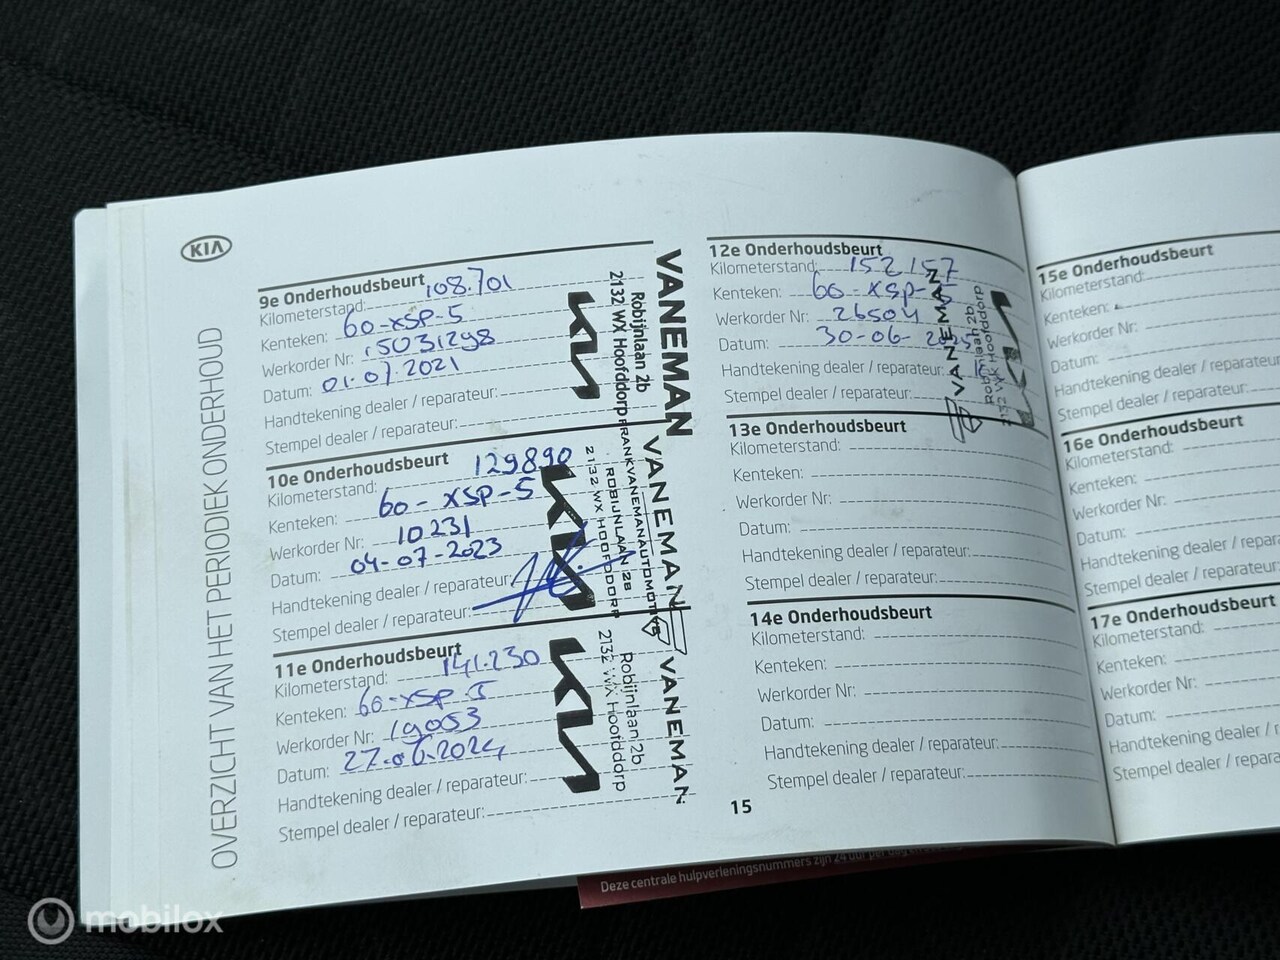 KIA
OVERZICHT VAN HET PERIODIEK ONDERHOUD
9e Onderhoudsbeurt
Kilometerstand: 108.701
Kenteken: 60-XSP-5
Werkorder Nr: 15031298
Datum: 01-07.2021
Handtekening dealer / reparateur:
Stempel dealer / reparateur:
VANEMAN
Robijnlaan 2b
2132 WX Hoofddorp
KIA
10e Onderhoudsbeurt
Kilometerstand: 129890
Kenteken: 60-XSP-5
Werkorder Nr: 10231
Datum: 04-07-2023
Handtekening dealer / reparateur:
Stempel dealer / reparateur:
VANEMAN
FRANKVANEMANAUTOMOTIVE
ROBIJNLAAN 2B
2132 WX HOOFDDORP
KIA
11e Onderhoudsbeurt
Kilometerstand: 141.230
Kenteken: 60-XSP-5
Werkorder Nr: 19053
Datum: 27.06.2024
Handtekening dealer / reparateur:
Stempel dealer / reparateur:
VANEMAN
Robijnlaan 2b
2132 WX Hoofddorp
KIA
12e Onderhoudsbeurt
Kilometerstand: 152157
Kenteken: 60-XSP-5
Werkorder Nr: 26504
Datum: 30-06-2025
Handtekening dealer / reparateur:
Stempel dealer / reparateur:
VANEMAN
Robijnlaan 2b
2132 WX Hoofddorp
KIA
13e Onderhoudsbeurt
Kilometerstand:
Kenteken:
Werkorder Nr:
Datum:
Handtekening dealer / reparateur:
Stempel dealer / reparateur:
14e Onderhoudsbeurt
Kilometerstand:
Kenteken:
Werkorder Nr:
Datum:
Handtekening dealer / reparateur:
Stempel dealer / reparateur:
15
15e Onderhoudsbeurt
Kilometerstand:
Kenteken:
Werkorder Nr:
Datum:
Handtekening dealer / reparateur:
Stempel dealer / reparateur:
16e Onderhoudsbeurt
Kilometerstand:
Kenteken:
Werkorder Nr:
Datum:
Handtekening dealer / repara
Stempel dealer / reparateur
17e Onderhoudsbeurt
Kilometerstand:
Kenteken:
Werkorder Nr:
Datum:
Handtekening dealer / repar
Stempel dealer / repara
Deze centrale hulpverleningsnummers zijn 24 uur per dag
mobilox